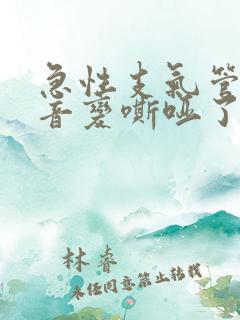 急性支气管
音变嘶哑了
林睿
未经同意禁止转载